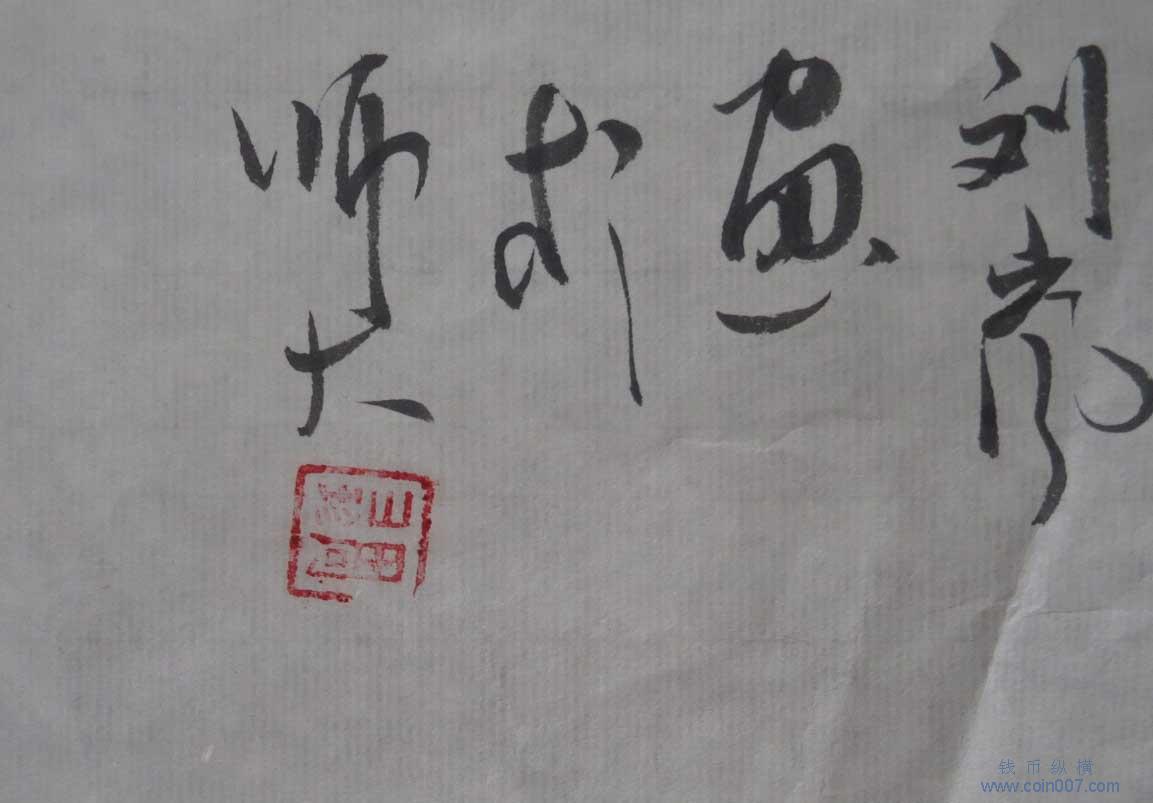 刘岚
画
师大
钱币纵横
www.coin007.com